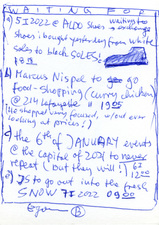 WAITING FOR
a) 5I2022 @ ALDO Shoes waiting to exchange
Shoes i bought yesterday from white
soles to black SOLES!
b) Marcus Nispel to go
food-shopping (curry chicken)
@ 214 Lafayette 1905
(he shopped very focused, w/out ever
looking at prices!)
c) the 6th of JANUARY events
@ the capitol of 2021 to never
repeat (but they will!) 6I
1200
d) JS to go out into the fresh
SNOW 7I2022 0900
B